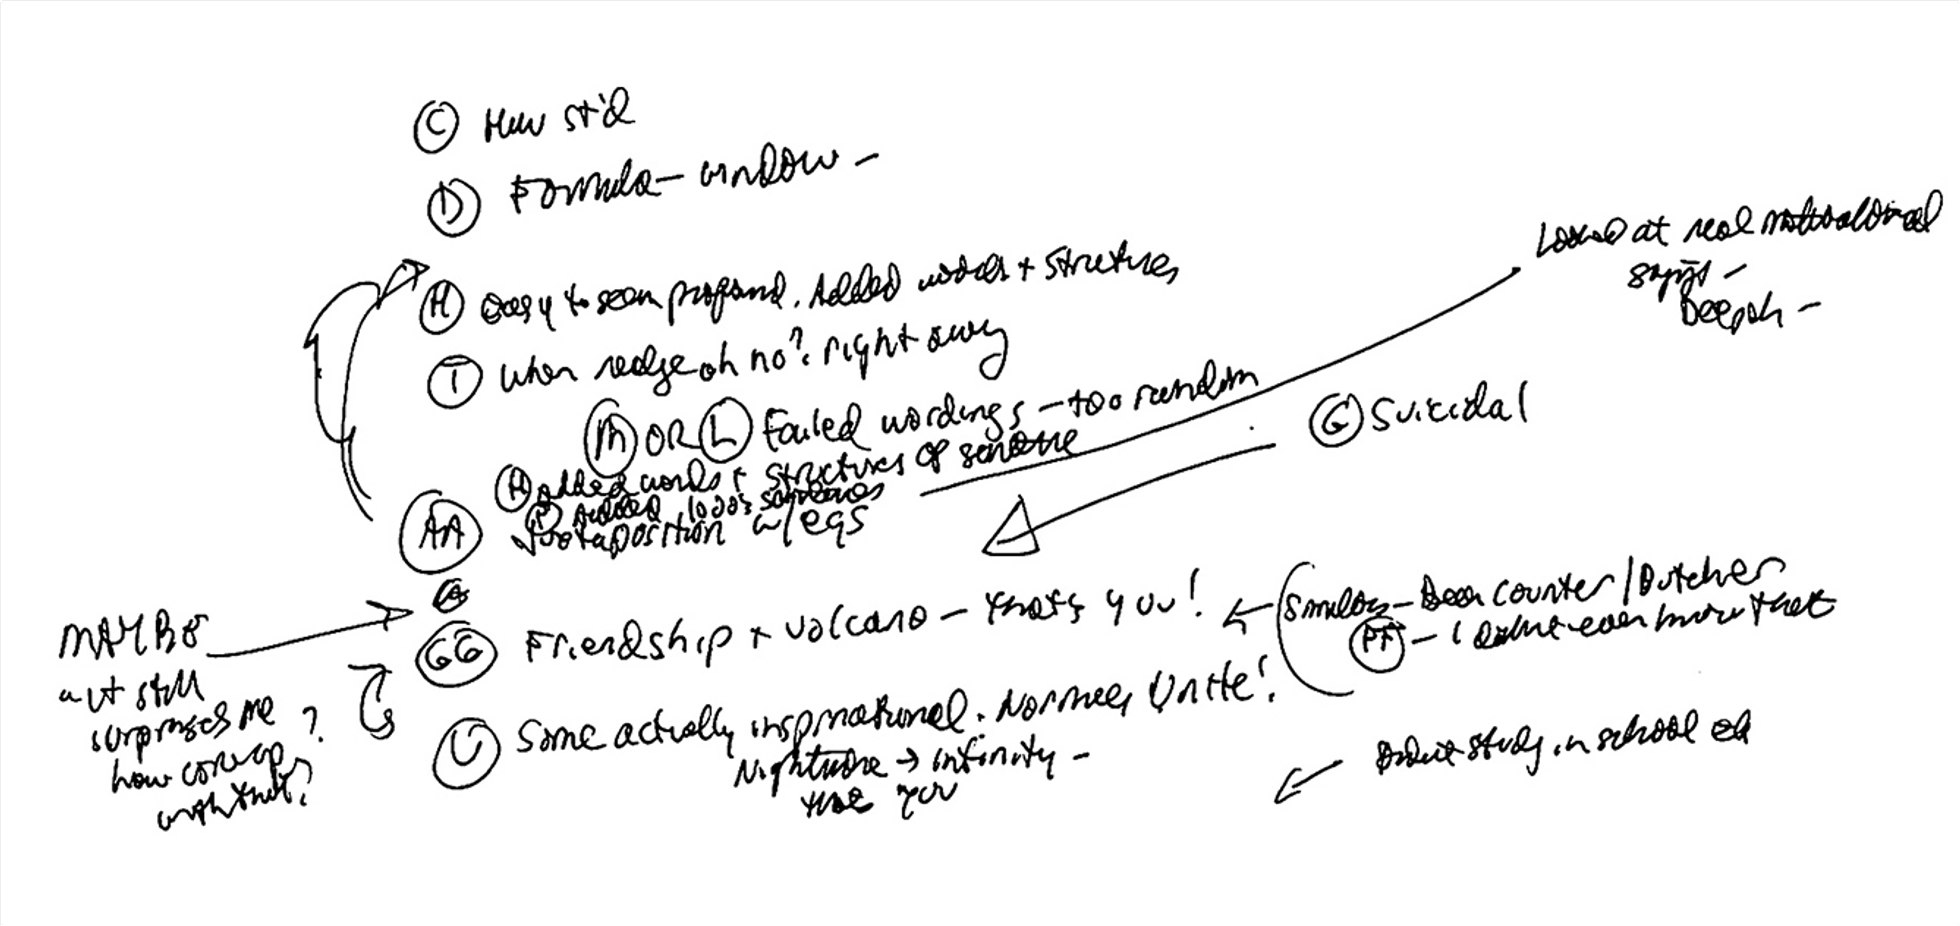 C How st'd
D Formula — window —
Looked at real motivational
sayings —
Deepak —
H easy to seem profound. Added words + structures
I When realize oh no? right away
M OR L Failed wordings — too random
G Suicidal
H added words + structures of sentence
added 1000s sentences
AA Juxtaposition w/ egs
GG Friendship + volcano — that's you!
Similar — Bean counter / Butcher
PF — I even more that
MAYBE
a lt still
surprises me
how comes up
with that?
?
U Some actually inspirational. Normies Unite!
Nightmare → infinity —
that you
study in school